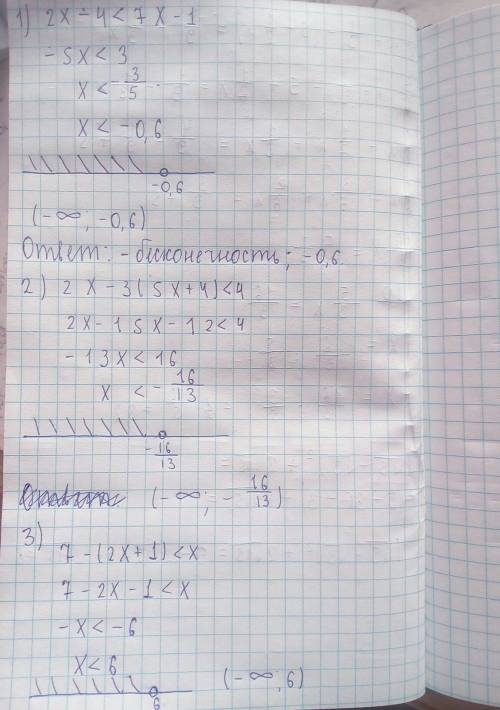 1) 2x - 4 < 7x - 1
- 5x < 3
x < - 3/5
x < - 0,6
-0,6
(-∞; -0,6)
Ответ: - бесконечность; -0,6
2) 2x - 3(5x+4)<4
2x - 15x - 12 < 4
- 13x < 16
x < - 16/13
- 16/13
(-∞; - 16/13)
3)
7 - (2x+1) < x
7 - 2x - 1 < x
- x < - 6
x < 6
(-∞; 6)
6